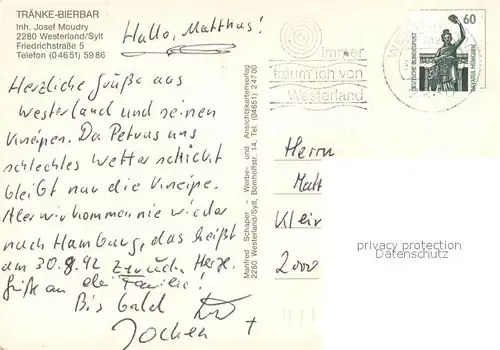 TRÄNKE-BIERBAR
Inh. Josef Moudry
2280 Westerland/Sylt
Friedrichstraße 5
Telefon (04651) 5986
Hallo, Matthias!
Herzliche Grüße aus
Westerland und seinen
Kneipen. Da Petrus uns
schlechtes Wetter schickt
bleibt nur die Kneipe.
Aber wir kommen nie wieder
nach Hamburg, das heißt
am 30.8.92 zurück. Herzl.
Grüße an die Familie!
Bis bald
Jochen +
Manfred Schaper – Werbe- und Ansichtskartenverlag
2280 Westerland/Sylt, Bomhoffstr. 14, Tel. (04651) 24700
immer
träum'ich von
Westerland
WE
60
DEUTSCHE BUNDESPOST
BAVARIA MÜNCHEN
Herrn
Matt
Klei
2000
privacy protection
Datenschutz